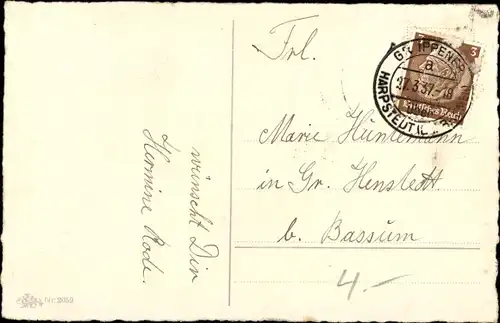 wünscht Dir
Hermine Rode.
Nr. 2059
Frl.
Marie Hünemann
in Gr. Henstedt
b. Bassum
4.-
3
GR. IPPENER
a
27.3.37.-18
HARPSTEDT
Deutsches Reich